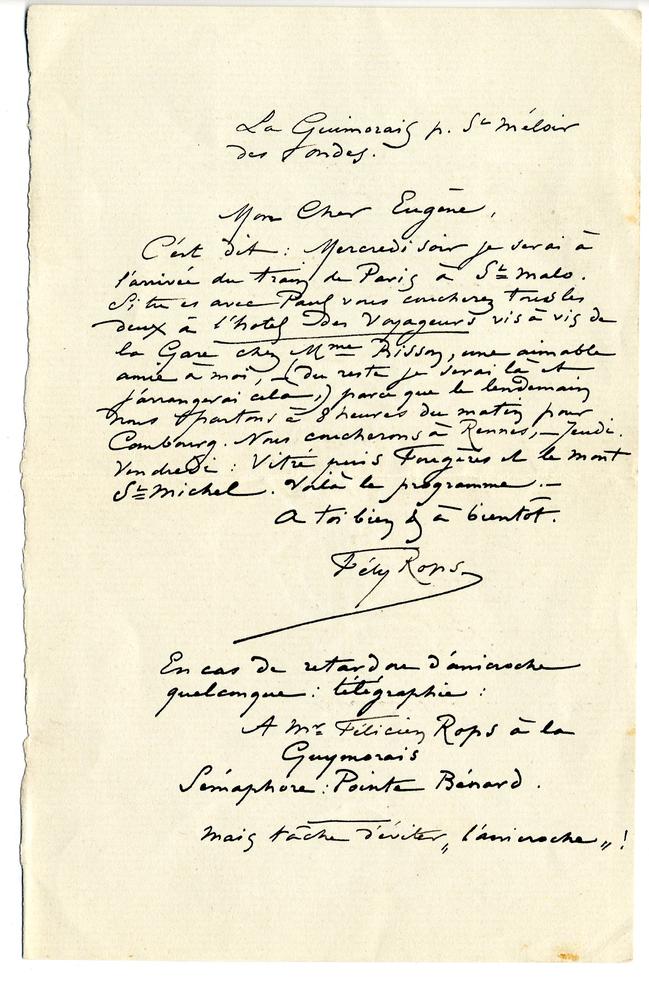 La Guimorais p. St Méloir
des Ondes.
Mon Cher Eugène,
C'est dit : Mercredi soir je serai à
l'arrivée du train de Paris à St Malo.
Si tu es avec Paul vous coucherez tous les
deux à l'hotel des Voyageurs vis à vis de
la Gare chez Mme Bisson, une aimable
amie à moi, – (du reste je serai là &
j'arrangerai cela,) parce que le lendemain
nous partons à 8 heures du matin pour
Combourg. Nous coucherons à Rennes, – Jeudi.
Vendredi : Vitré puis Fougères et le mont
St Michel. Voilà le programme. –
A toi bien & à bientôt.
Fély Rops
En cas de retard ou d'anicroche
quelconque : télégraphie :
A Mr Félicien Rops à la
Guymorais
Sémaphore : Pointe Bénard.
Mais tâche d'éviter „ l'anicroche „ !